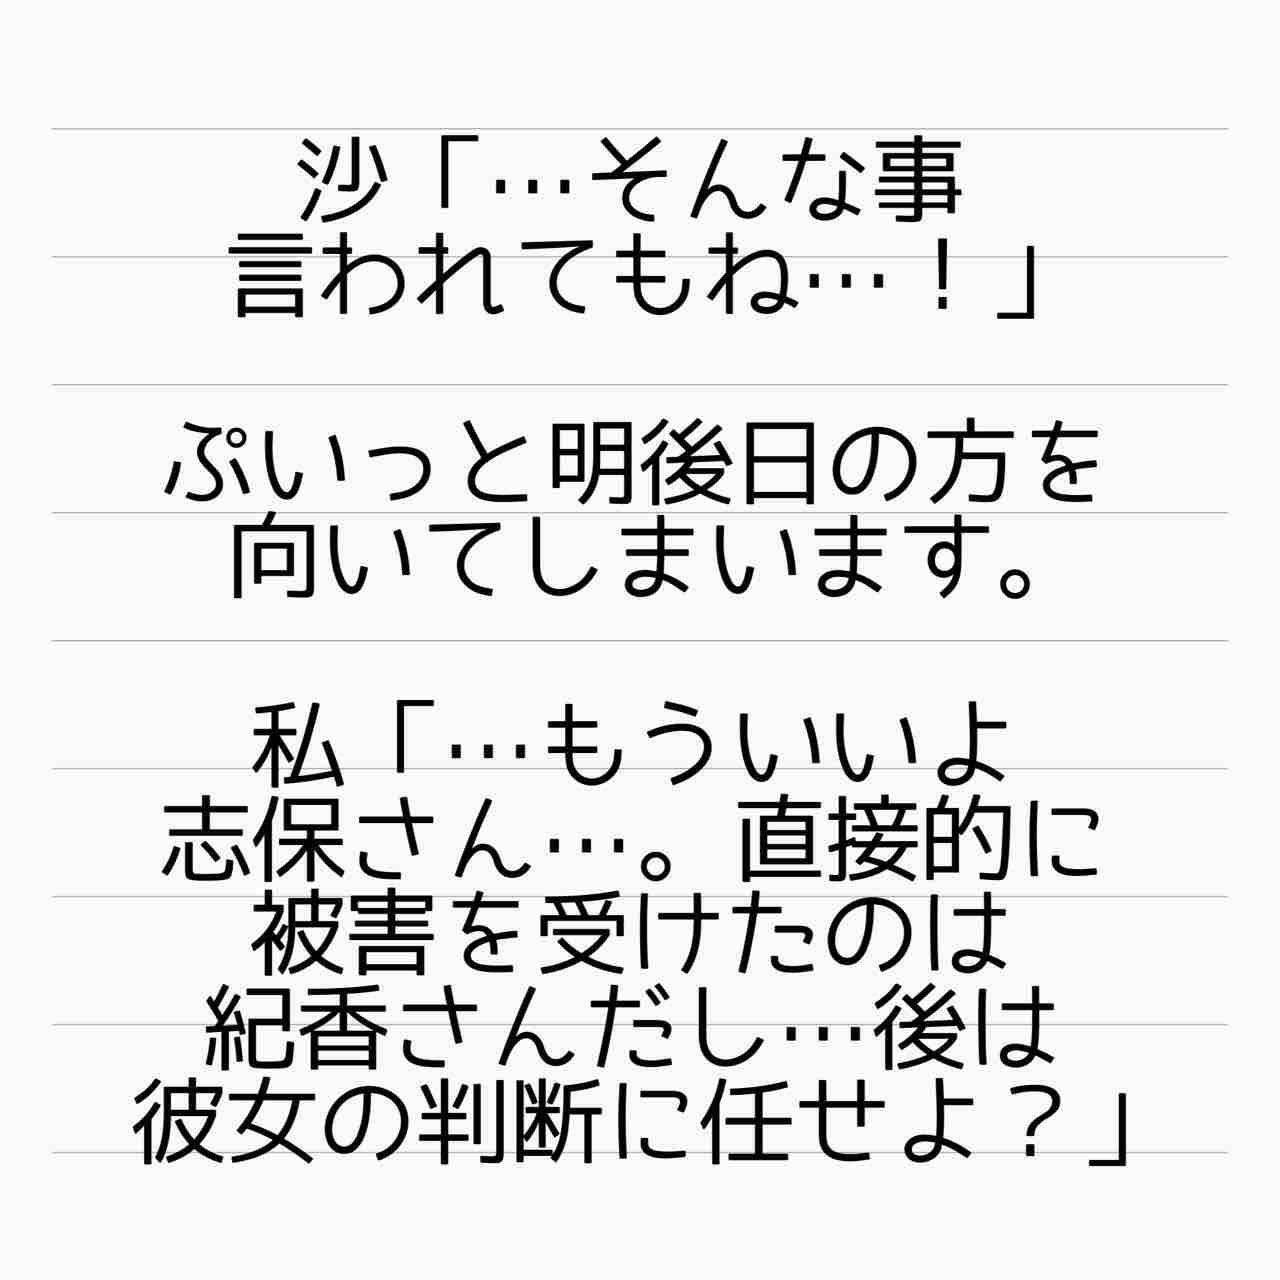 沙「…そんな事
言われてもね…！」
ぷいっと明後日の方を
向いてしまいます。
私「…もういいよ
志保さん…。直接的に
被害を受けたのは
紀香さんだし…後は
彼女の判断に任せよ？」